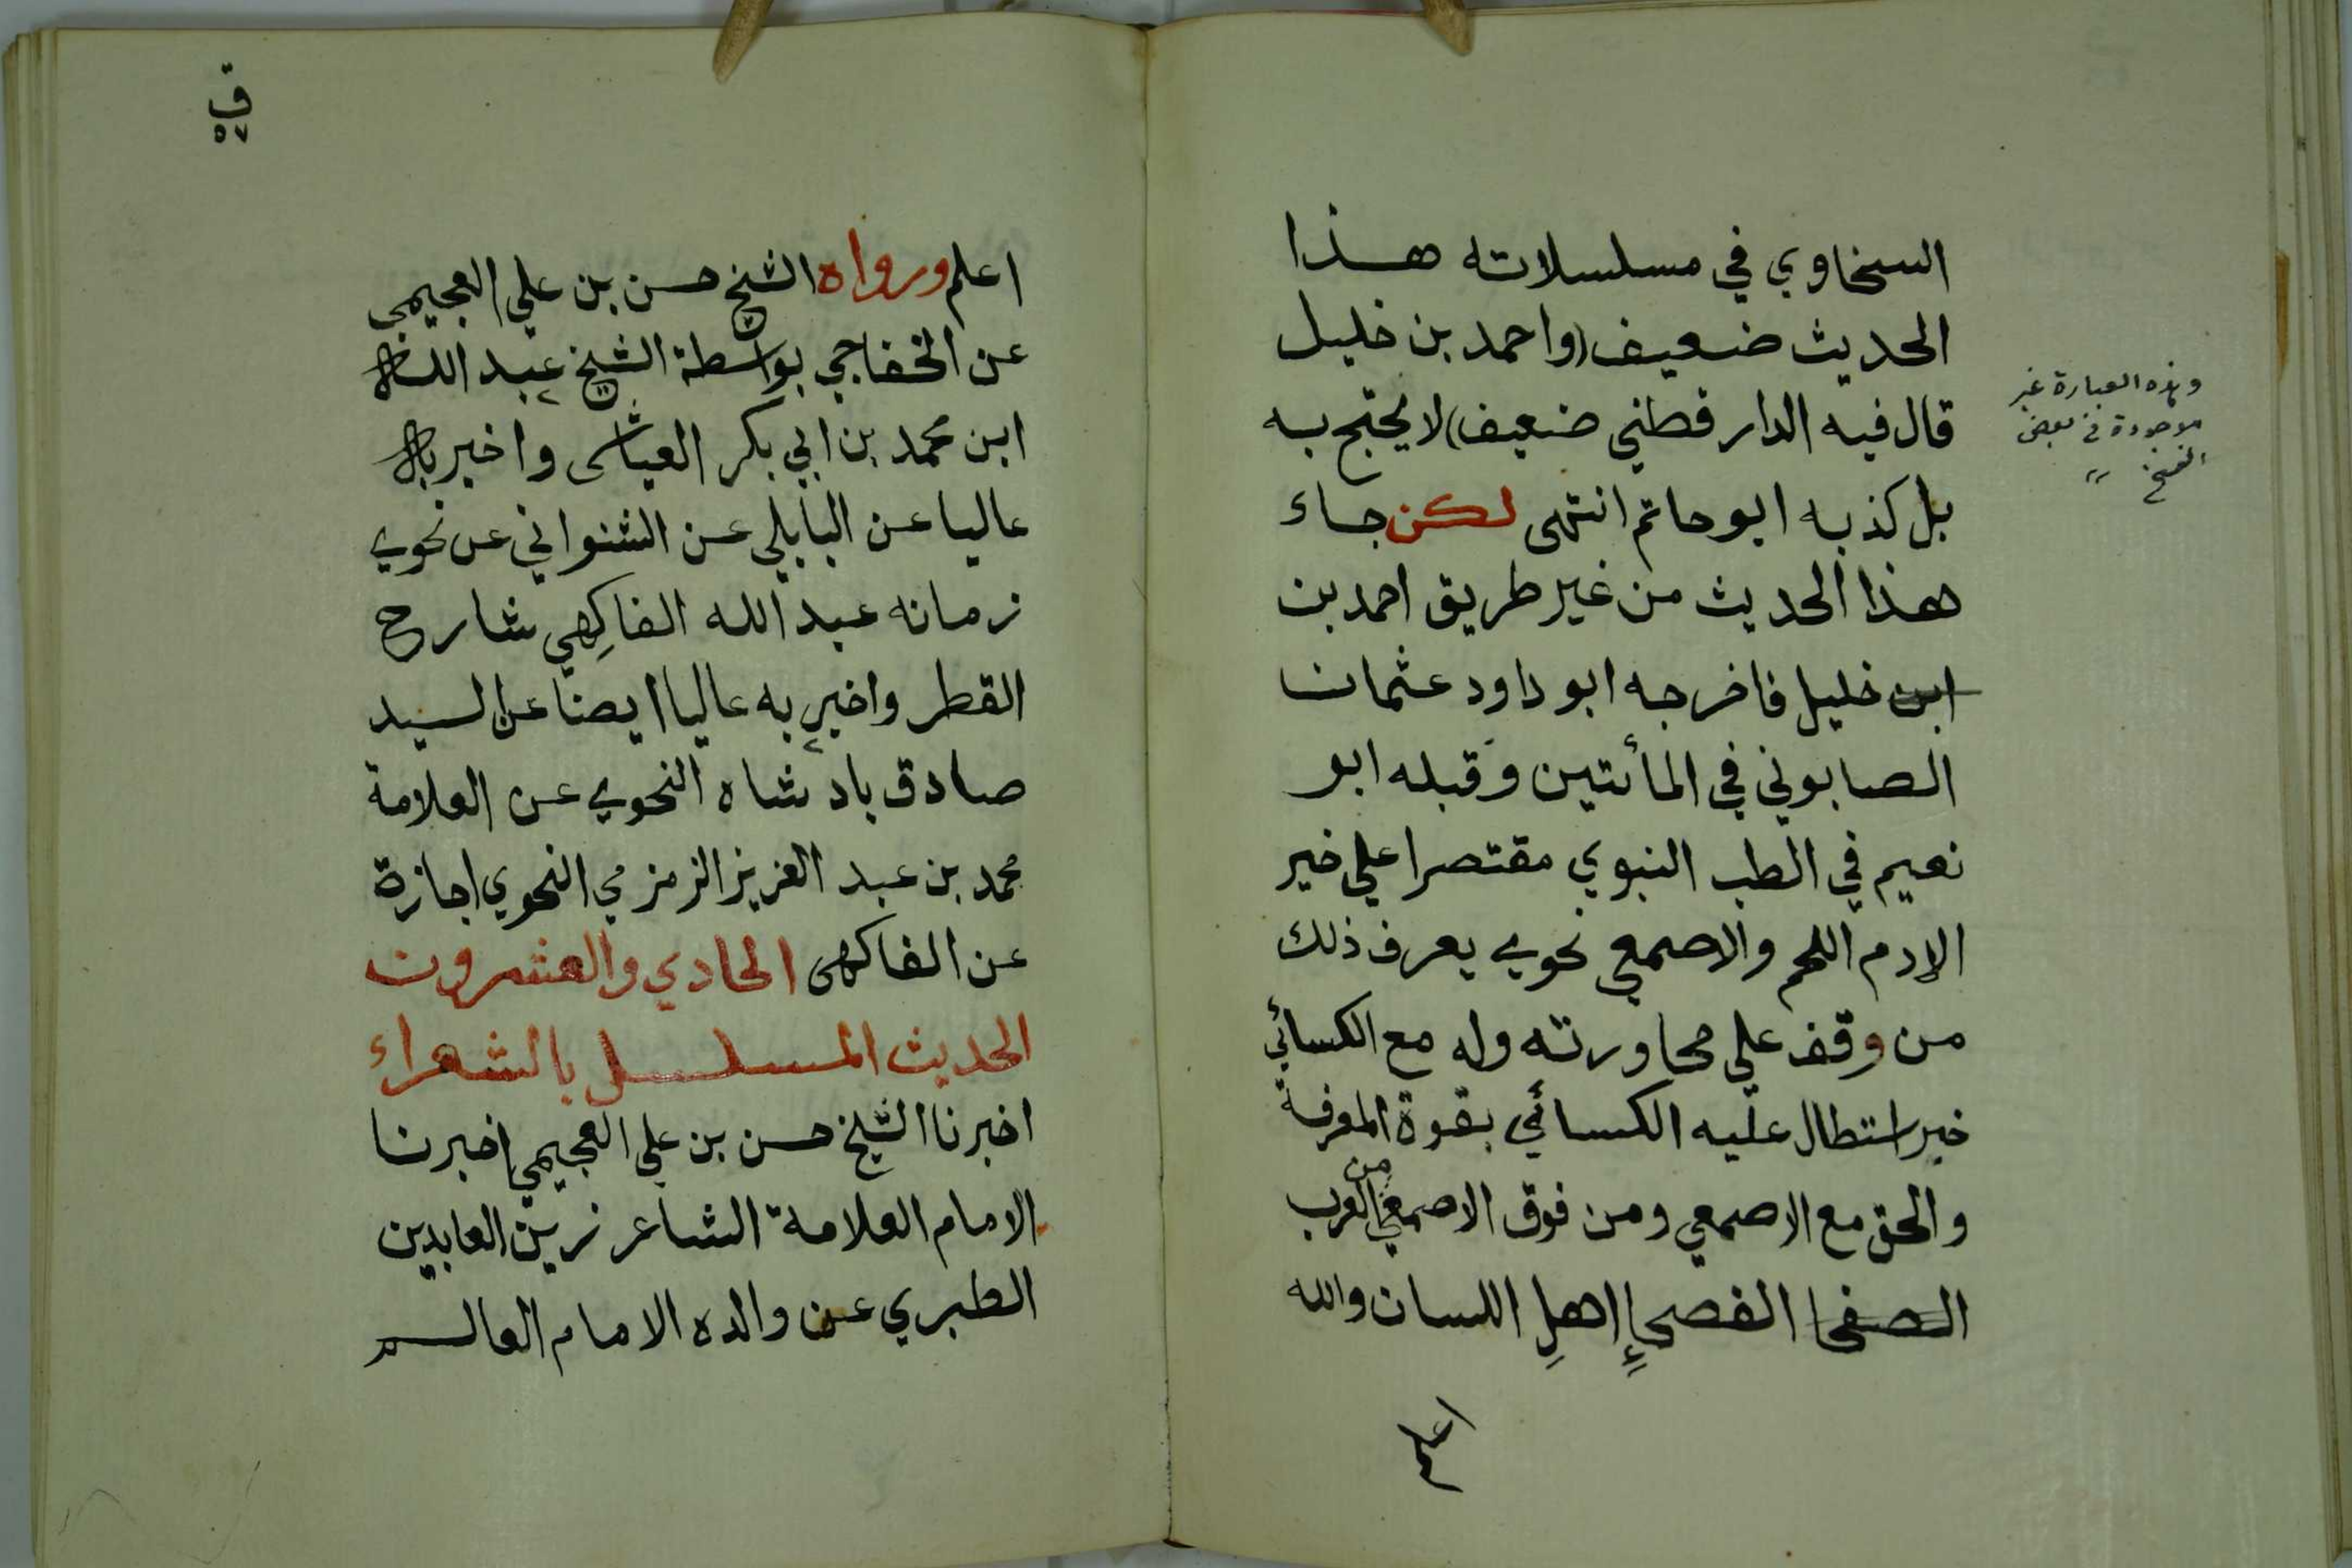 السخاوي في مسلسلاته هذا
الحديث ضعيف (واحمد بن خليل
قال فيه الدار قطني ضعيف) لا يحتج به
بل كذبه ابو حاتم انتهى لكن جاء
هذا الحديث من غير طريق احمد بن
ابن خليل فاخرجه ابو داود عثمان
الصابوني في المأتين وقبله ابو
نعيم في الطب النبوي مقتصرا علي خير
الادم اللحم والاصمعي نحوي يعرف ذلك
من وقف علي محاورته وله مع الكسائي
خبر استطال عليه الكسائي بقوة المعرفة
والحق مع الاصمعي ومن فوق الاصمعي من العرب
الصفحا الفصحاءِ اهلِ اللسان والله
اعلم
وهذه العبارة غير
موجودة في بعض
النسخ
ق
٥٧
اعلم ورواه الشيخ حسن بن علي العجيمي
عن الخفاجي بواسطة الشيخ عبد الله
ابن محمد بن ابي بكر العياشى واخبر به
عاليا عن البابلي عن الشنواني عن نحوي
زمانه عبد الله الفاكِهي شارح
القطر واخبر به عاليا ايضا عن السيد
صادق باد شاه النحوي عن العلامة
محمد بن عبد العزيز الزمزمي النحوي اجازة
عن الفاكهى الحادي والعشرون
الحديث المسلسل بالشعراء
اخبرنا الشيخ حسن بن علي العجيمي اخبرنا
الامام العلامة الشاعر زين العابدين
الطبري عن والده الامام العالم